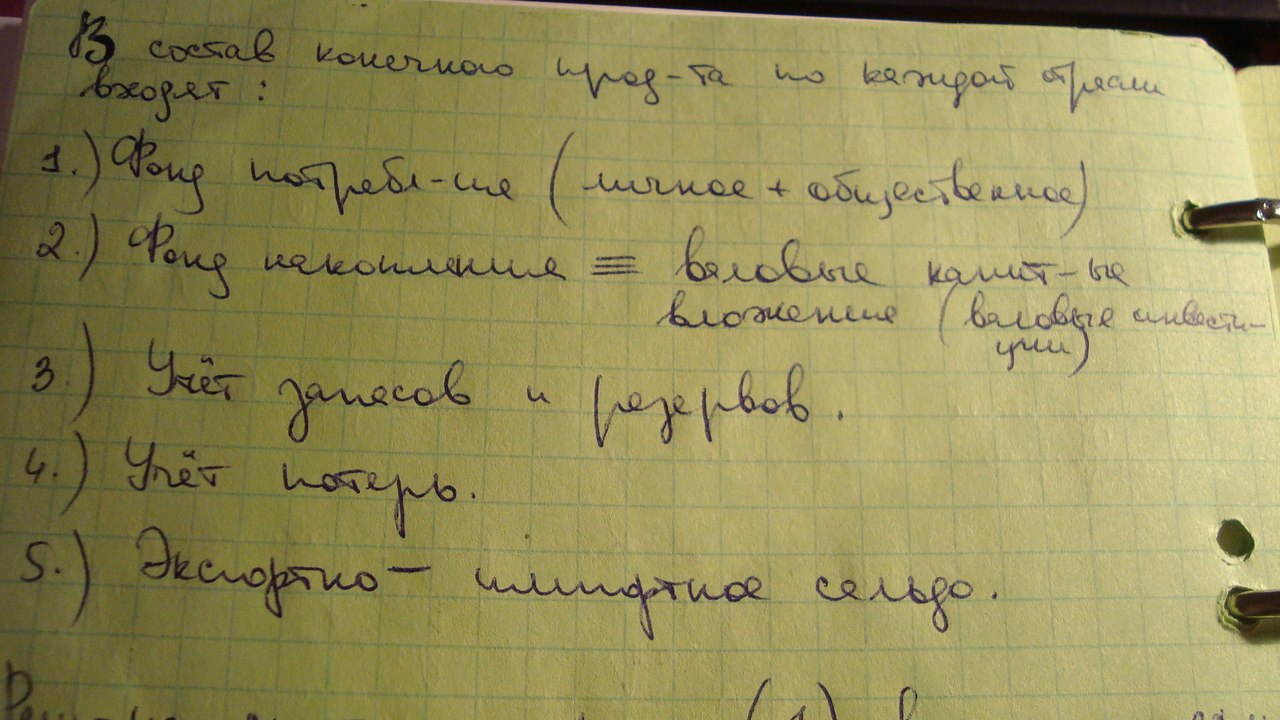 В состав конечного прод-та по каждой отрасли
входят:
1.) Фонд потребл-ие (личное + общественное)
2.) Фонд накопления ≡ валовые капит-ые
вложения (валовые инвести-
ции)
3.) Учёт запасов и резервов.
4.) Учёт потерь.
5.) Экспортно - импортное сальдо.
(1)